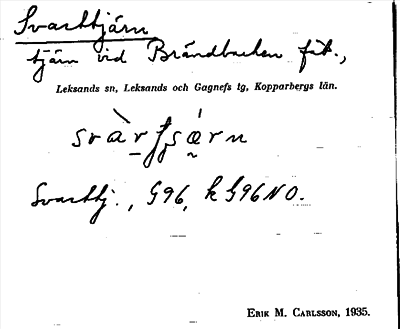 Svarttjärn
tjärn vid Brändbacken fäb.,
Leksands sn, Leksands och Gagnefs tg, Kopparbergs län.
Svarttj., G96, k G96 NO.
ERIK M. CARLSSON, 1935.